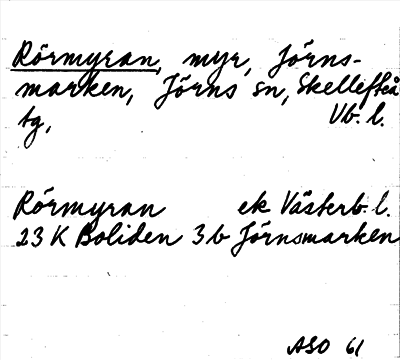 Rörmyran, myr, Jörns-
marken, Jörns sn, Skellefteå
tg, Vb. l.
Rörmyran ek Västerb. l.
23 K Boliden 3 b Jörnsmarken
ASO 61